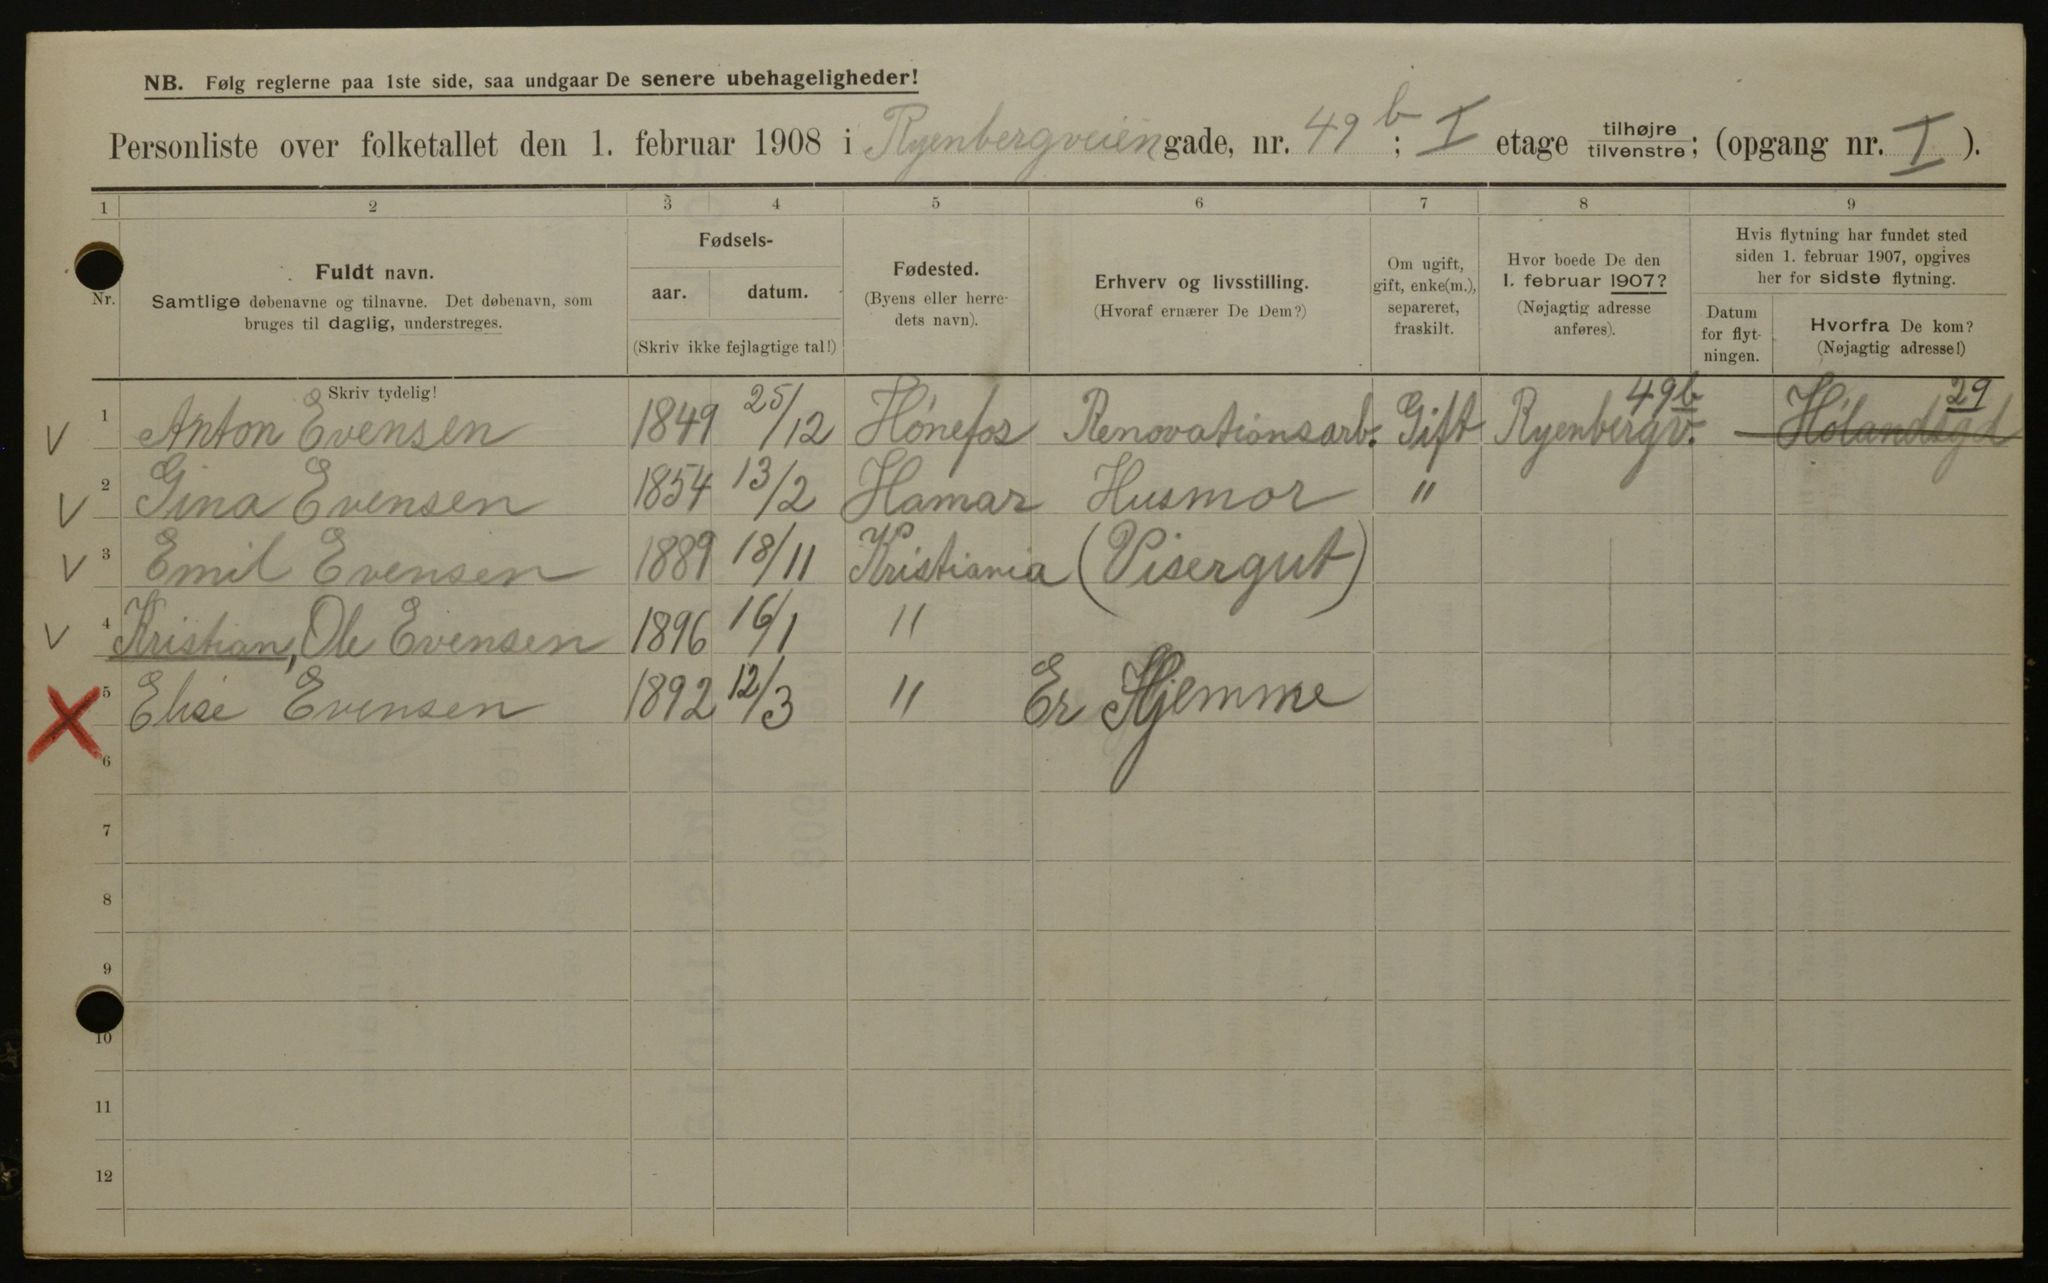 NB. Følg reglerne paa 1ste side, saa undgaar De senere ubehageligheder!
Personliste over folketallet den 1. februar 1908 i Ryenbergveien gade, nr. 49 b; I etage tilhøjre tilvenstre; (opgang nr. I ).
1 2 3 4 5 6 7 8 9
Nr.
Fuldt navn.
Samtlige døbenavne og tilnavne. Det døbenavn, som
bruges til daglig, understreges.
Skriv tydelig!
Fødsels-
aar. datum.
(Skriv ikke fejlagtige tal!)
Fødested.
(Byens eller herre-
dets navn).
Erhverv og livsstilling.
(Hvoraf ernærer De Dem?)
Om ugift,
gift, enke(m.),
separeret,
fraskilt.
Hvor boede De den
1. februar 1907?
(Nøjagtig adresse
anføres).
Hvis flytning har fundet sted
siden 1. februar 1907, opgives
her for sidste flytning.
Datum
for flyt-
ningen.
Hvorfra De kom?
(Nøjagtig adresse!)
1 Anton Evensen 1849 25/12 Hónefos Renovationsarb. Gift Ryenbergv. 49b Hólandsgd 29
2 Gina Evensen 1854 13/2 Hamar Husmor "
3 Emil Evensen 1889 18/11 Kristiania (Visergut)
4 Kristian, Ole Evensen 1896 16/1 "
5 Elise Evensen 1892 12/3 " Er Hjemme
6
7
8
9
10
11
12